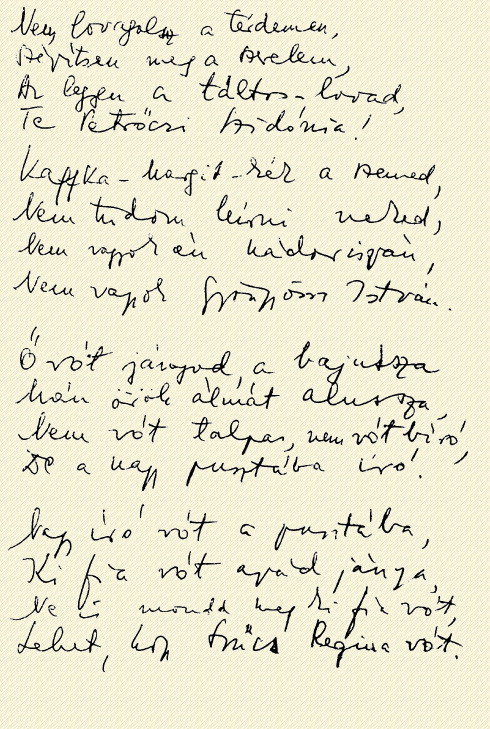 Nem lovagolsz a térdemen,
Repítsen meg a szerelem,
Az legyen a táltos-lovad,
Te Petrőczi Szidónia!
Kaffka-Margit-kék a szemed,
Nem tudom leírni neked,
Nem vagyok én nádorispán,
Nem vagyok Gyöngyössi István.
Ő vót jányod, a bajussza
Mán örök álmát alussza,
Nem vót talpas, nem vót bíró,
De a nagy pusztába író!
Nagy író vót a pusztába,
Ki fia vót apád jánya,
Ne is mondd meg ki fia vót,
Lehet, hogy Szűcs Regina vót.